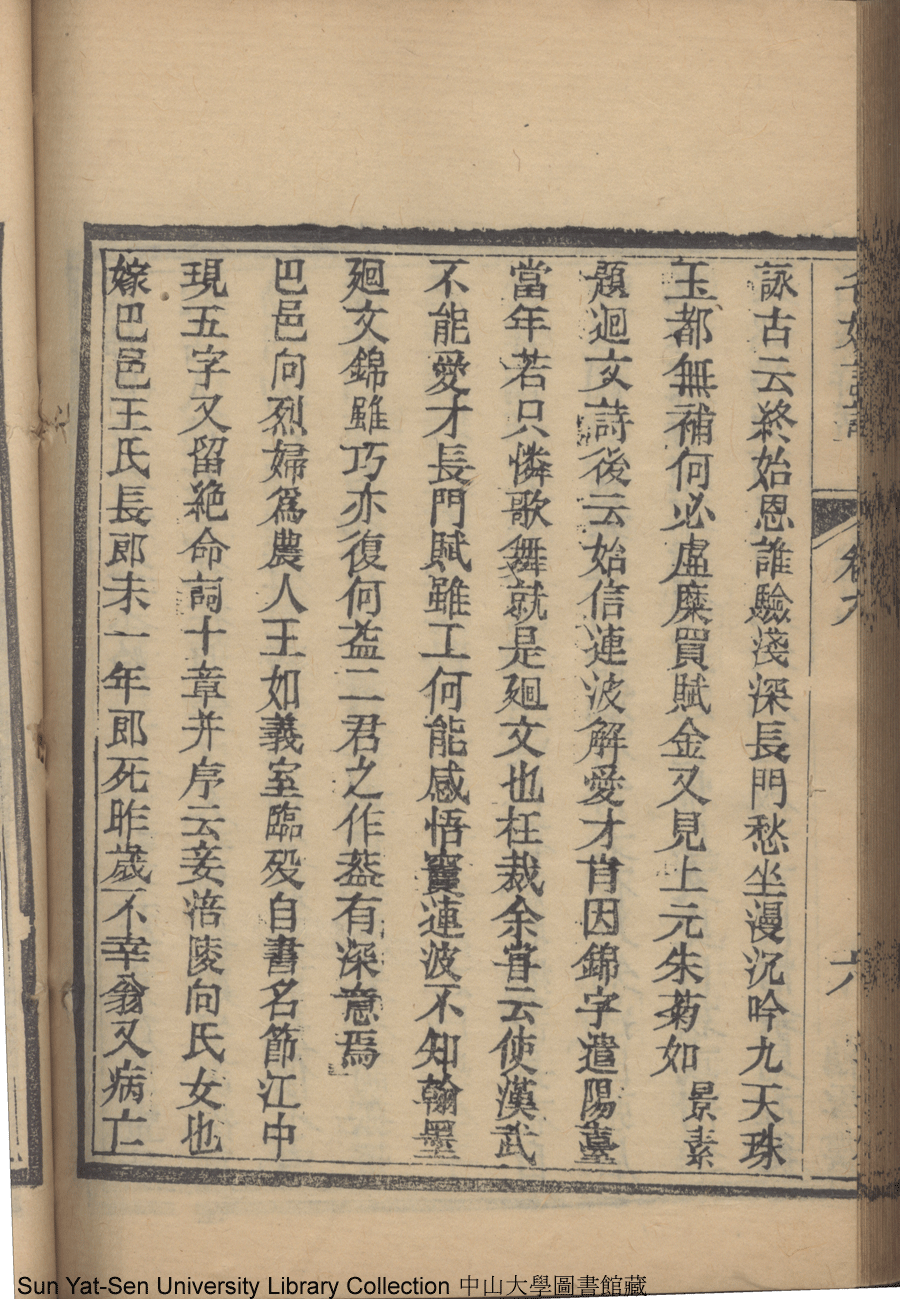 詠古云終始恩誰驗淺深長門愁坐漫沉吟九天珠
玉都無補何必虛糜買賦金又見上元朱菊如景素
題迴文詩後云始信連波解愛才肯因錦字遣陽臺
當年若只憐歌舞就是廻文也枉裁余嘗云使漢武
不能愛才長門賦雖工何能感悟竇連波不知翰墨
廻文錦雖巧亦復何益二君之作葢有深意焉
巴邑向烈婦爲農人王如義室臨歿自書名節江中
現五字又留絶命詞十章并序云妾涪陵向氏女也
嫁巴邑王氏長郎未一年郎死昨歲不幸翁又病亡
Sun Yat-Sen University Library Collection 中山大學圖書館藏